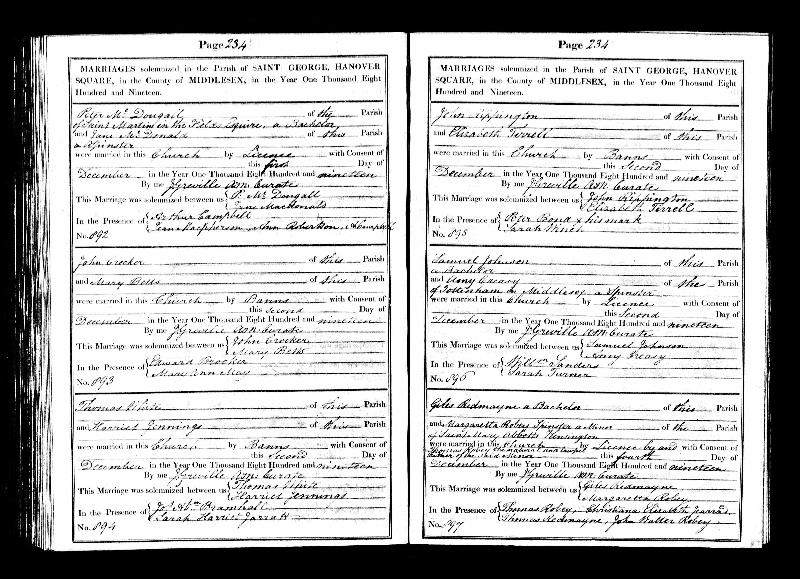 Page 234
MARRIAGES solemnized in the Parish of SAINT GEORGE, HANOVER
SQUARE, in the County of MIDDLESEX, in the Year One Thousand Eight
Hundred and Nineteen.
Peter Mc Dougall of the Parish
of Saint Martin in the Fields Esquire, a Bachelor
and Jane Mc Donald of this Parish
a Spinster
were married in this Church by Licence with Consent of
this first Day of
December in the Year One Thousand Eight Hundred and nineteen
By me Curate
This Marriage was solemnized between us P. Mc Dougall
Jane MacDonald
In the Presence of Arthur Campbell
Jean Macpherson Ann Robertson A Campbell
No. 892
John Crocker of this Parish
and Mary Betts of this Parish
were married in this Church by Banns with Consent of
this Second Day of
December in the Year One Thousand Eight Hundred and nineteen
By me Curate
This Marriage was solemnized between us John Crocker
Mary Betts
In the Presence of Edward Crocker
Mary Ann May
No. 893
Thomas White of this Parish
and Harriet Jennings of this Parish
were married in this Church by Banns with Consent of
this Second Day of
December in the Year One Thousand Eight Hundred and nineteen
By me Curate
This Marriage was solemnized between us Thomas White
Harriet Jennings
In the Presence of Bramhall
Sarah Harriet
No. 894
Page 234
MARRIAGES solemnized in the Parish of SAINT GEORGE, HANOVER
SQUARE, in the County of MIDDLESEX, in the Year One Thousand Eight
Hundred and Nineteen.
John Rippington of this Parish
and Elizabeth Terrell of this Parish
were married in this Church by Banns with Consent of
this Second Day of
December in the Year One Thousand Eight Hundred and nineteen
By me Curate
This Marriage was solemnized between us John Rippington
Elizabeth Terrell
In the Presence of Peter Bond x his mark
Sarah Winch
No. 895
Samuel Johnson of this Parish
a Bachelor
and Amy Creasy of the Parish
of Tottenham in Middlesex a Spinster
were married in this Church by Licence with Consent of
this Second Day of
December in the Year One Thousand Eight Hundred and nineteen
By me Curate
This Marriage was solemnized between us Samuel Johnson
Amy Creasy
In the Presence of Willm Sanders
Sarah Turner
No. 896
Giles Redmayne a Bachelor of this Parish
and Margaretta Robey Spinster a Minor of the Parish
of Saint Mary Abbotts Kensington
were married in this Church by Licence by and with Consent of
Thomas Robey the natural and lawful
Father of the said Minor this fourth Day of
December in the Year One Thousand Eight Hundred and nineteen
By me Curate
This Marriage was solemnized between us Giles Redmayne
Margaretta Robey
In the Presence of Thomas Robey, Christiana Elizabeth
Thomas Redmayne, John Walter Robey
No. 897